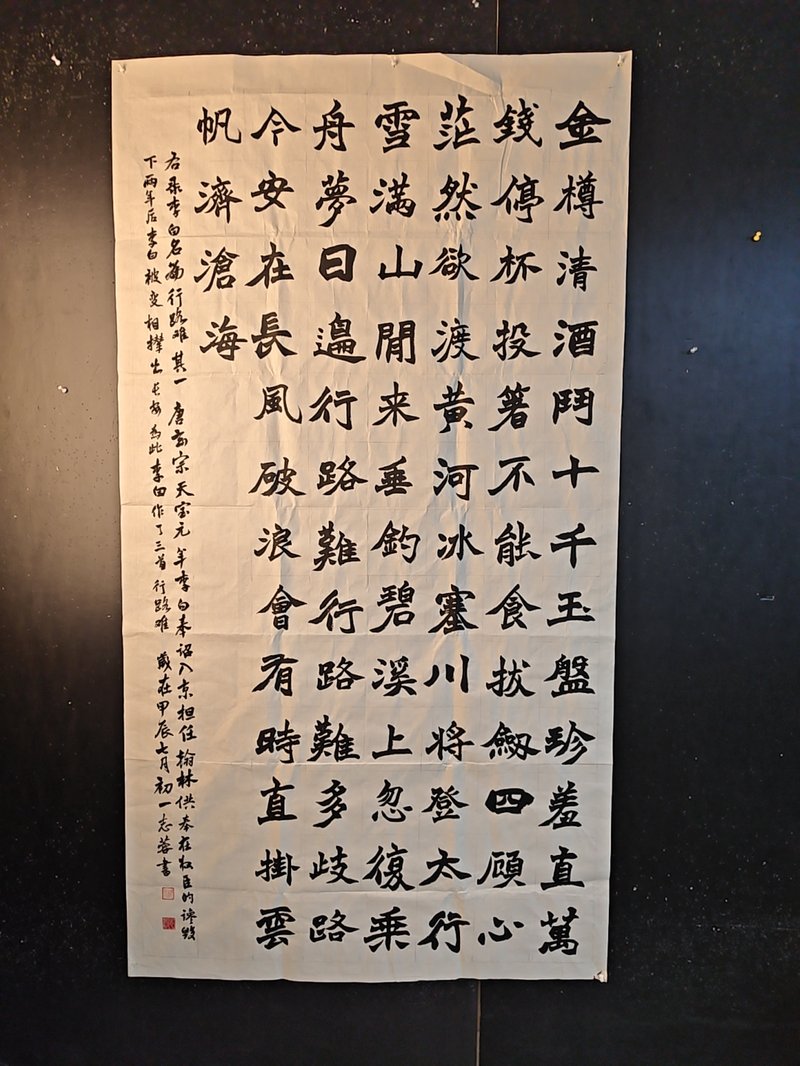 金樽清酒鬥十千玉盤珍羞直萬
錢停杯投箸不能食拔劔四顧心
茫然欲渡黃河冰塞川將登太行
雪滿山閒来垂釣碧溪上忽復乘
舟夢日邊行路難行路難多歧路
今安在長風破浪會有時直掛雲
帆濟滄海
右录李白名篇行路难其一 唐玄宗天宝元年李白奉诏入京担任翰林供奉在权臣的谗毁
下两年后李白被变相撵出长安为此李白作了三首行路难 歲在甲辰七月初一志蓉書